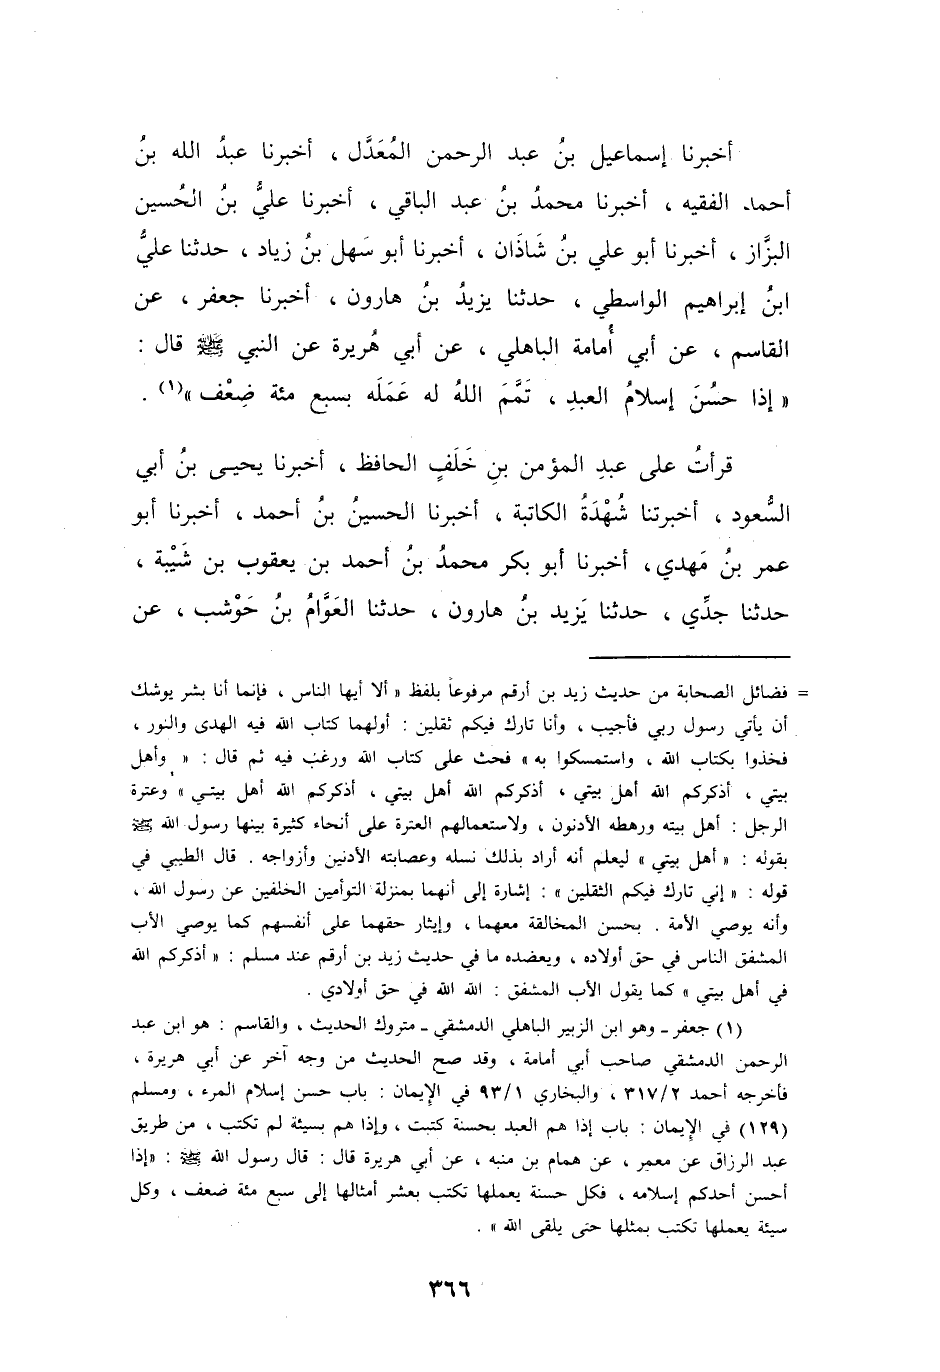 أخبرنا إسماعيل بنُ عبد الرحمن المُعَدَّل ، أخبرنا عبدُ الله بنُ
أحمد الفقيه ، أخبرنا محمدُ بنُ عبد الباقي ، أخبرنا عليُّ بنُ الحُسين
البزَّاز ، أخبرنا أبو علي بنُ شَاذَان ، أخبرنا أبو سَهل بنُ زياد ، حدثنا عليُّ
ابنُ إبراهيم الواسطي ، حدثنا يزيدُ بنُ هارون ، أخبرنا جعفر ، عن
القاسم ، عن أبي أُمامة الباهلي ، عن أبي هُريرة عن النبي ﷺ قال :
« إذا حسُنَ إسلامُ العبدِ ، تَمَّمَ اللهُ له عَمَلَه بسبع مئة ضِعْف »(١) .
قرأتُ على عبدِ المؤمن بنِ خَلَفٍ الحافظ ، أخبرنا يحيى بنُ أبي
السُّعود ، أخبرتنا شُهْدَةُ الكاتبة ، أخبرنا الحسينُ بنُ أحمد ، أخبرنا أبو
عمر بنُ مَهدي، أخبرنا أبو بكر محمدُ بنُ أحمد بن يعقوب بن شَيْبة ،
حدثنا جدِّي ، حدثنا يَزيد بنُ هارون ، حدثنا العَوَّامُ بنُ حَوْشب ، عن
= فضائل الصحابة من حديث زيد بن أرقم مرفوعاً بلفظ « ألا أيها الناس ، فإنما أنا بشر يوشك
أن يأتي رسول ربي فأجيب ، وأنا تارك فيكم ثقلين : أولهما كتاب الله فيه الهدى والنور ،
فخذوا بكتاب الله ، واستمسكوا به » فحث على كتاب الله ورغب فيه ثم قال : « وأهل
بيتي ، أذكركم الله أهل بيتي ، أذكركم الله أهل بيتي ، أذكركم الله أهل بيتي » وعترة
الرجل : أهل بيته ورهطه الأدنون ، ولاستعمالهم العترة على أنحاء كثيرة بينها رسول الله ﷺ
بقوله : « أهل بيتي » ليعلم أنه أراد بذلك نسله وعصابته الأدنين وأزواجه . قال الطيبي في
قوله : « إني تارك فيكم الثقلين » : إشارة إلى أنهما بمنزلة التوأمين الخلفين عن رسول الله ،
وأنه يوصي الأمة . بحسن المخالقة معهما ، وإيثار حقهما على أنفسهم كما يوصي الأب
المشفق الناس في حق أولاده ، ويعضده ما في حديث زيد بن أرقم عند مسلم : « أذكركم الله
في أهل بيتي » كما يقول الأب المشفق : الله الله في حق أولادي .
(١) جعفر ـ وهو ابن الزبير الباهلي الدمشقي ـ متروك الحديث ، والقاسم : هو ابن عبد
الرحمن الدمشقي صاحب أبي أمامة ، وقد صح الحديث من وجه آخر عن أبي هريرة ،
فأخرجه أحمد ٣١٧/٢ ، والبخاري ٩٣/١ في الإيمان : باب حسن إسلام المرء ، ومسلم
(١٢٩) في الإيمان : باب إذا هم العبد بحسنة كتبت ، وإذا هم بسيئة لم تكتب ، من طريق
عبد الرزاق عن معمر ، عن همام بن منبه ، عن أبي هريرة قال : قال رسول الله ﷺ : «إذا
أحسن أحدكم إسلامه ، فكل حسنة يعملها تكتب بعشر أمثالها إلى سبع مئة ضعف ، وكل
سيئة يعملها تكتب بمثلها حتى يلقى الله » .
٣٦٦